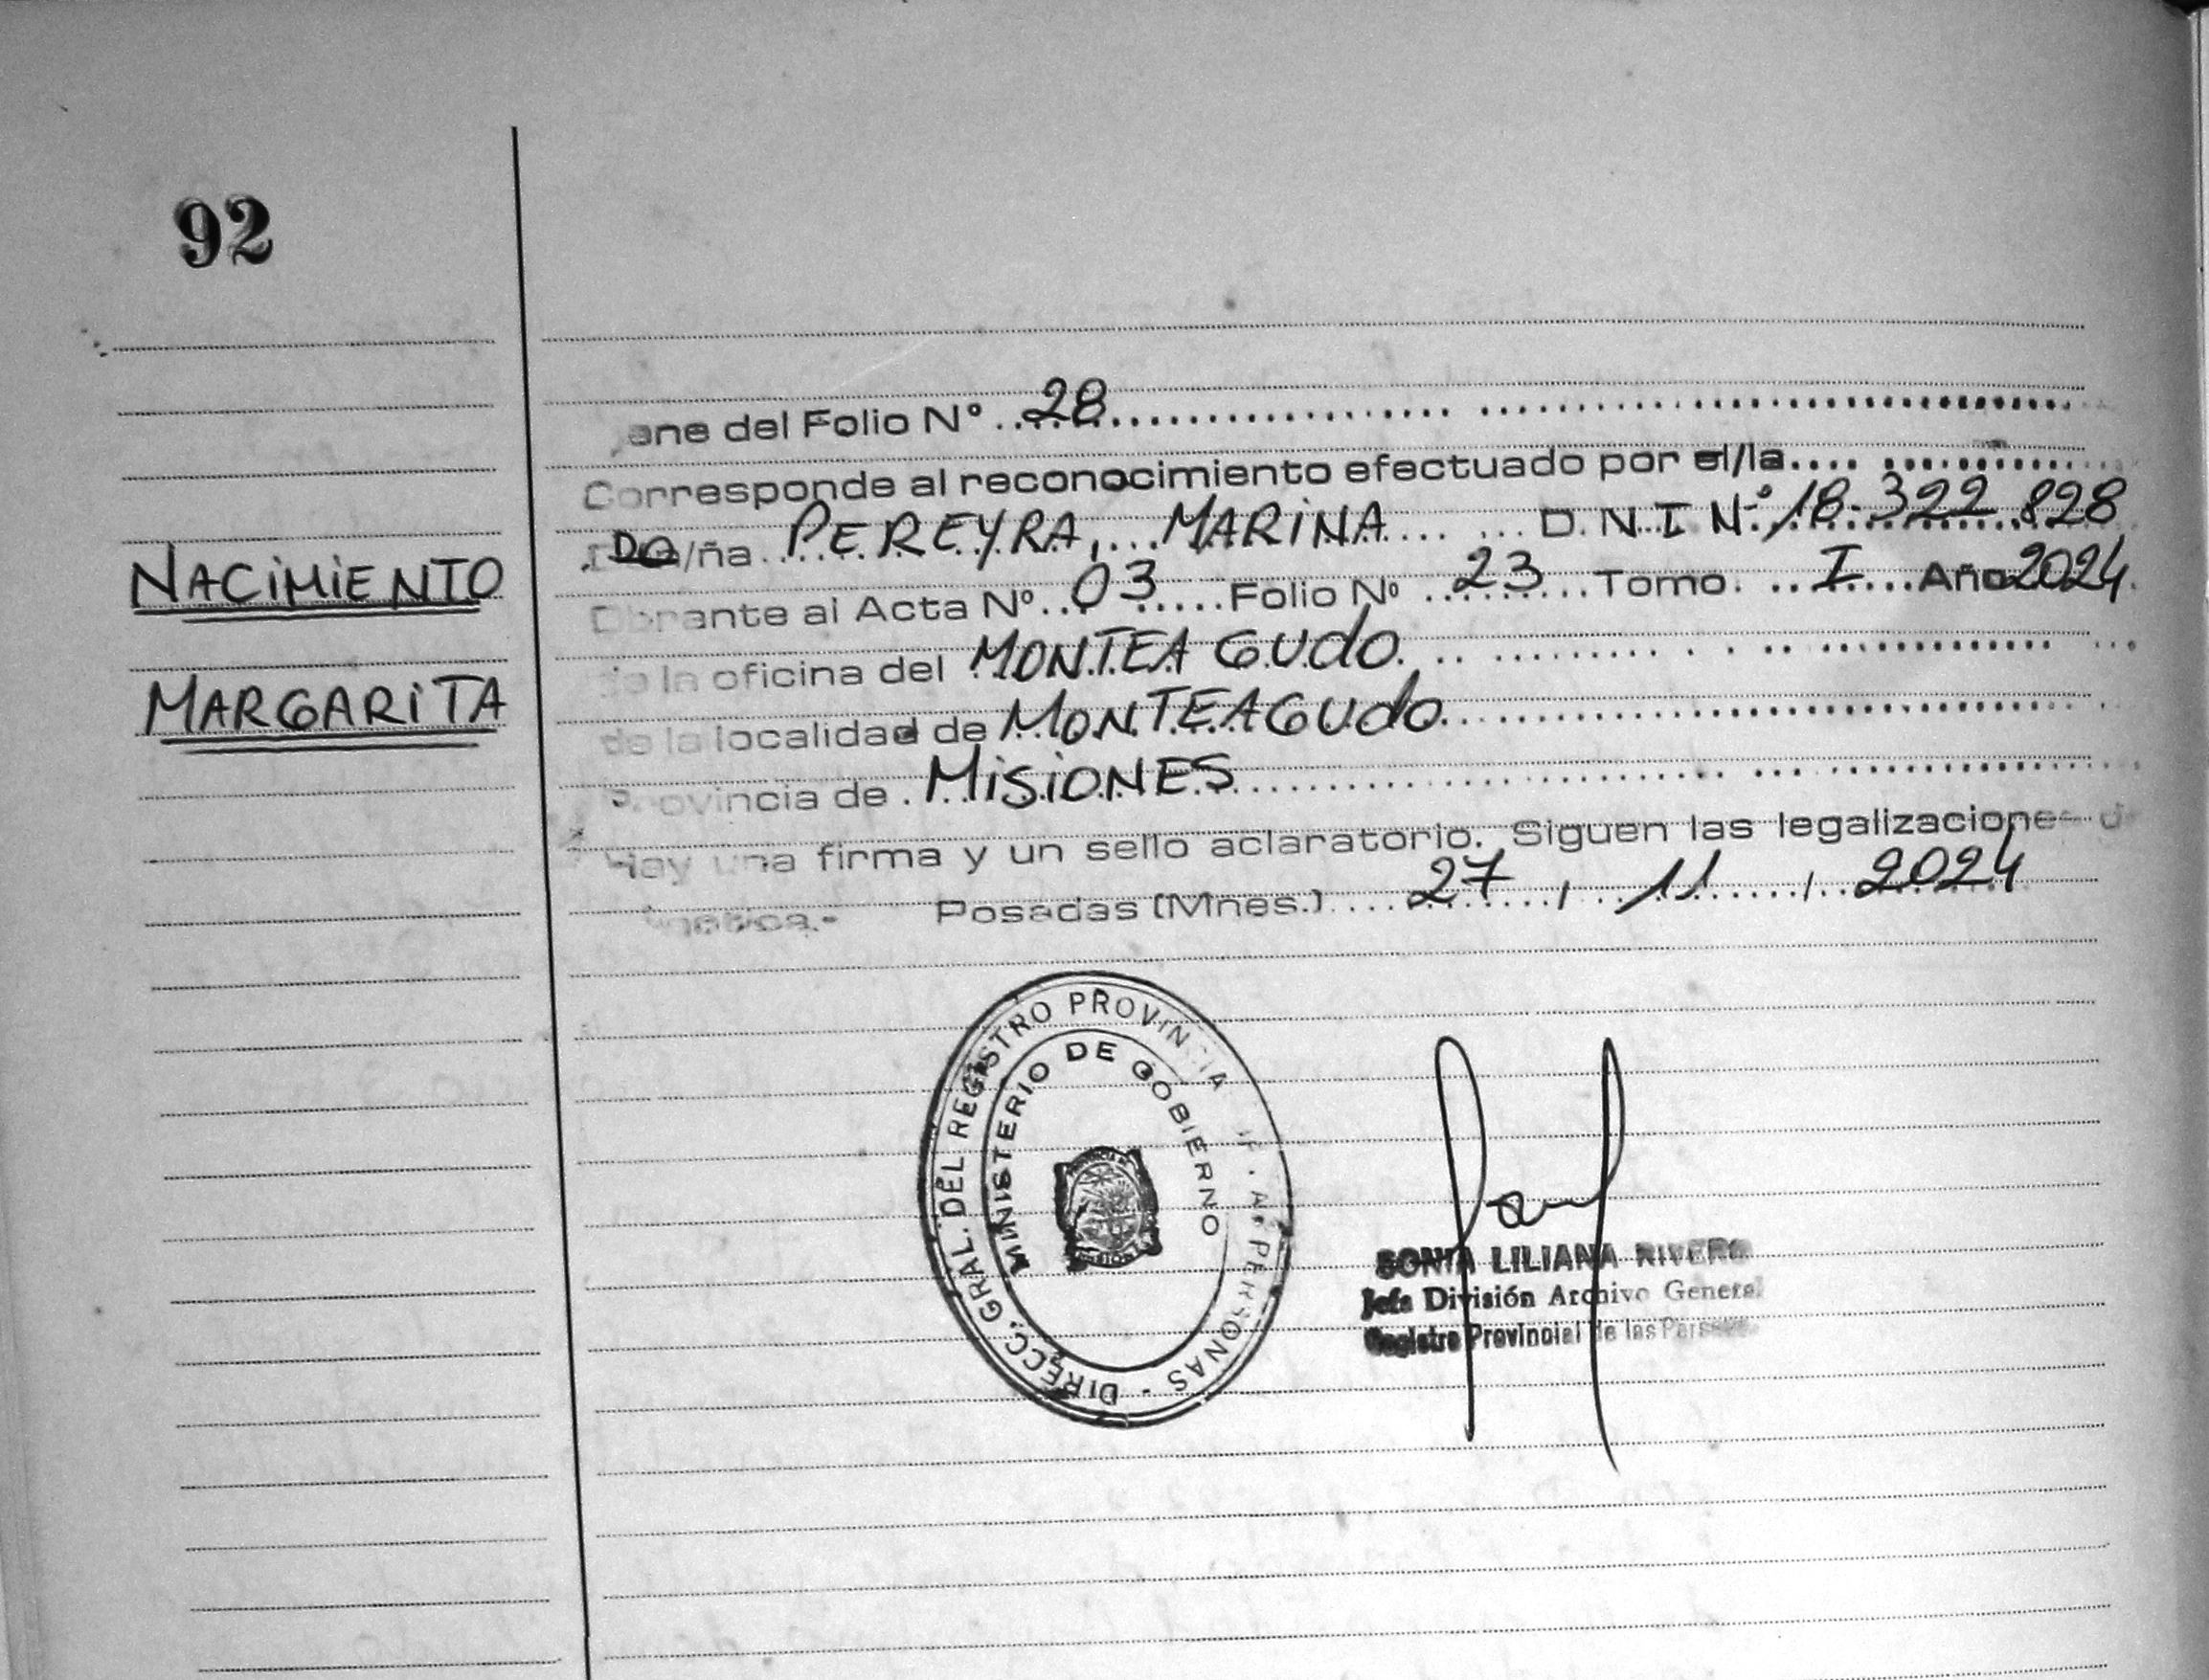 92
ene del Folio Nº 28
Corresponde al reconocimiento efectuado por el/la
Do/ña PEREYRA, MARINA D.N.I Nº 18.322.828
NACIMIENTO
Obrante al Acta Nº 03 Folio Nº 23 Tomo I Año 2024
de la oficina del MONTEAGUdo
MARGARITA
de la localidad de MONTEAGUdo
Provincia de MISIONES
Hay una firma y un sello aclaratorio. Siguen las legalizaciones de
Posadas (Mnes.) 27 / 11 / 2024
DIRECC. GRAL. DEL REGISTRO PROVINCIA PERSONAS -
MINISTERIO DE GOBIERNO
SONIA LILIANA RIVERO
Jefa División Archivo General
Registro Provincial de las Personas